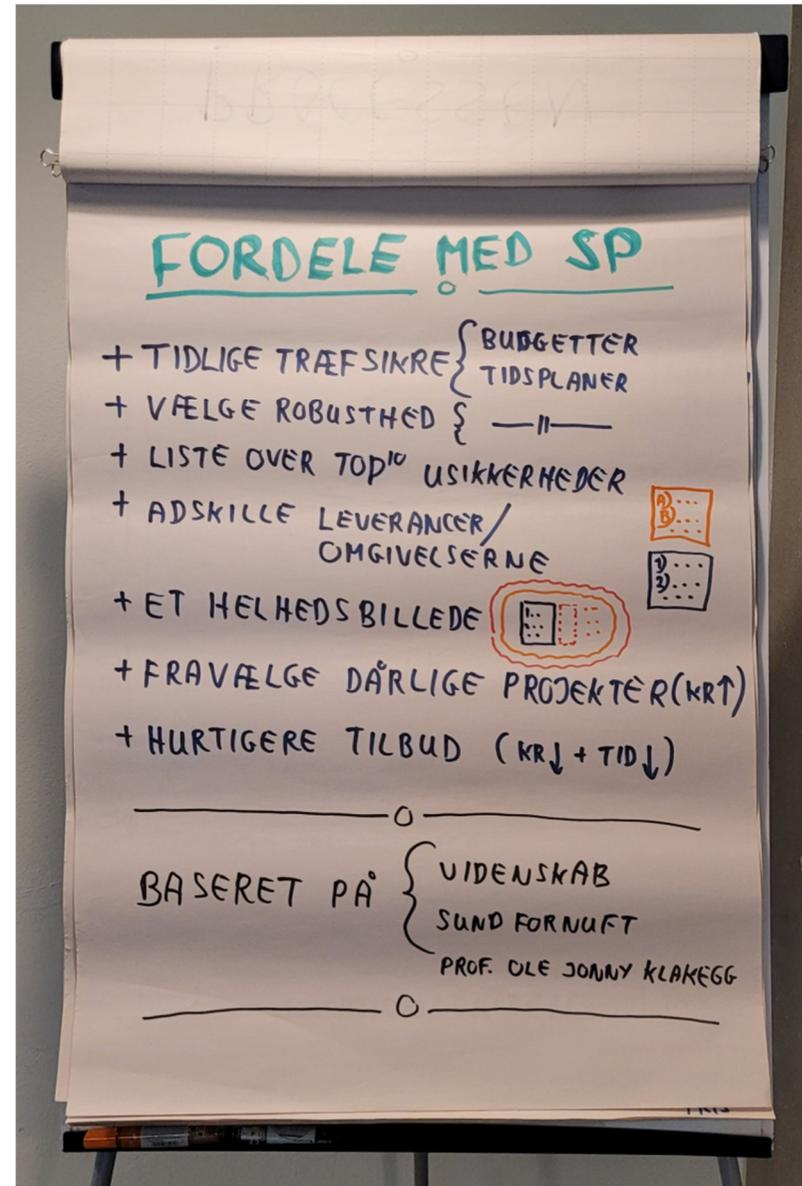 PROCESSEN
FORDELE MED SP
+ TIDLIGE TRÆFSIKRE { BUDGETTER
TIDSPLANER
+ VÆLGE ROBUSTHED { —11—
+ LISTE OVER TOP10 USIKKERHEDER
+ ADSKILLE LEVERANCER/
OMGIVELSERNE
A)
B)
1)
2)
+ ET HELHEDSBILLEDE
+ FRAVÆLGE DÅRLIGE PROJEKTER (KR↑)
+ HURTIGERE TILBUD (KR↓ + TID↓)
BASERET PÅ { VIDENSKAB
SUND FORNUFT
PROF. OLE JONNY KLAKEGG